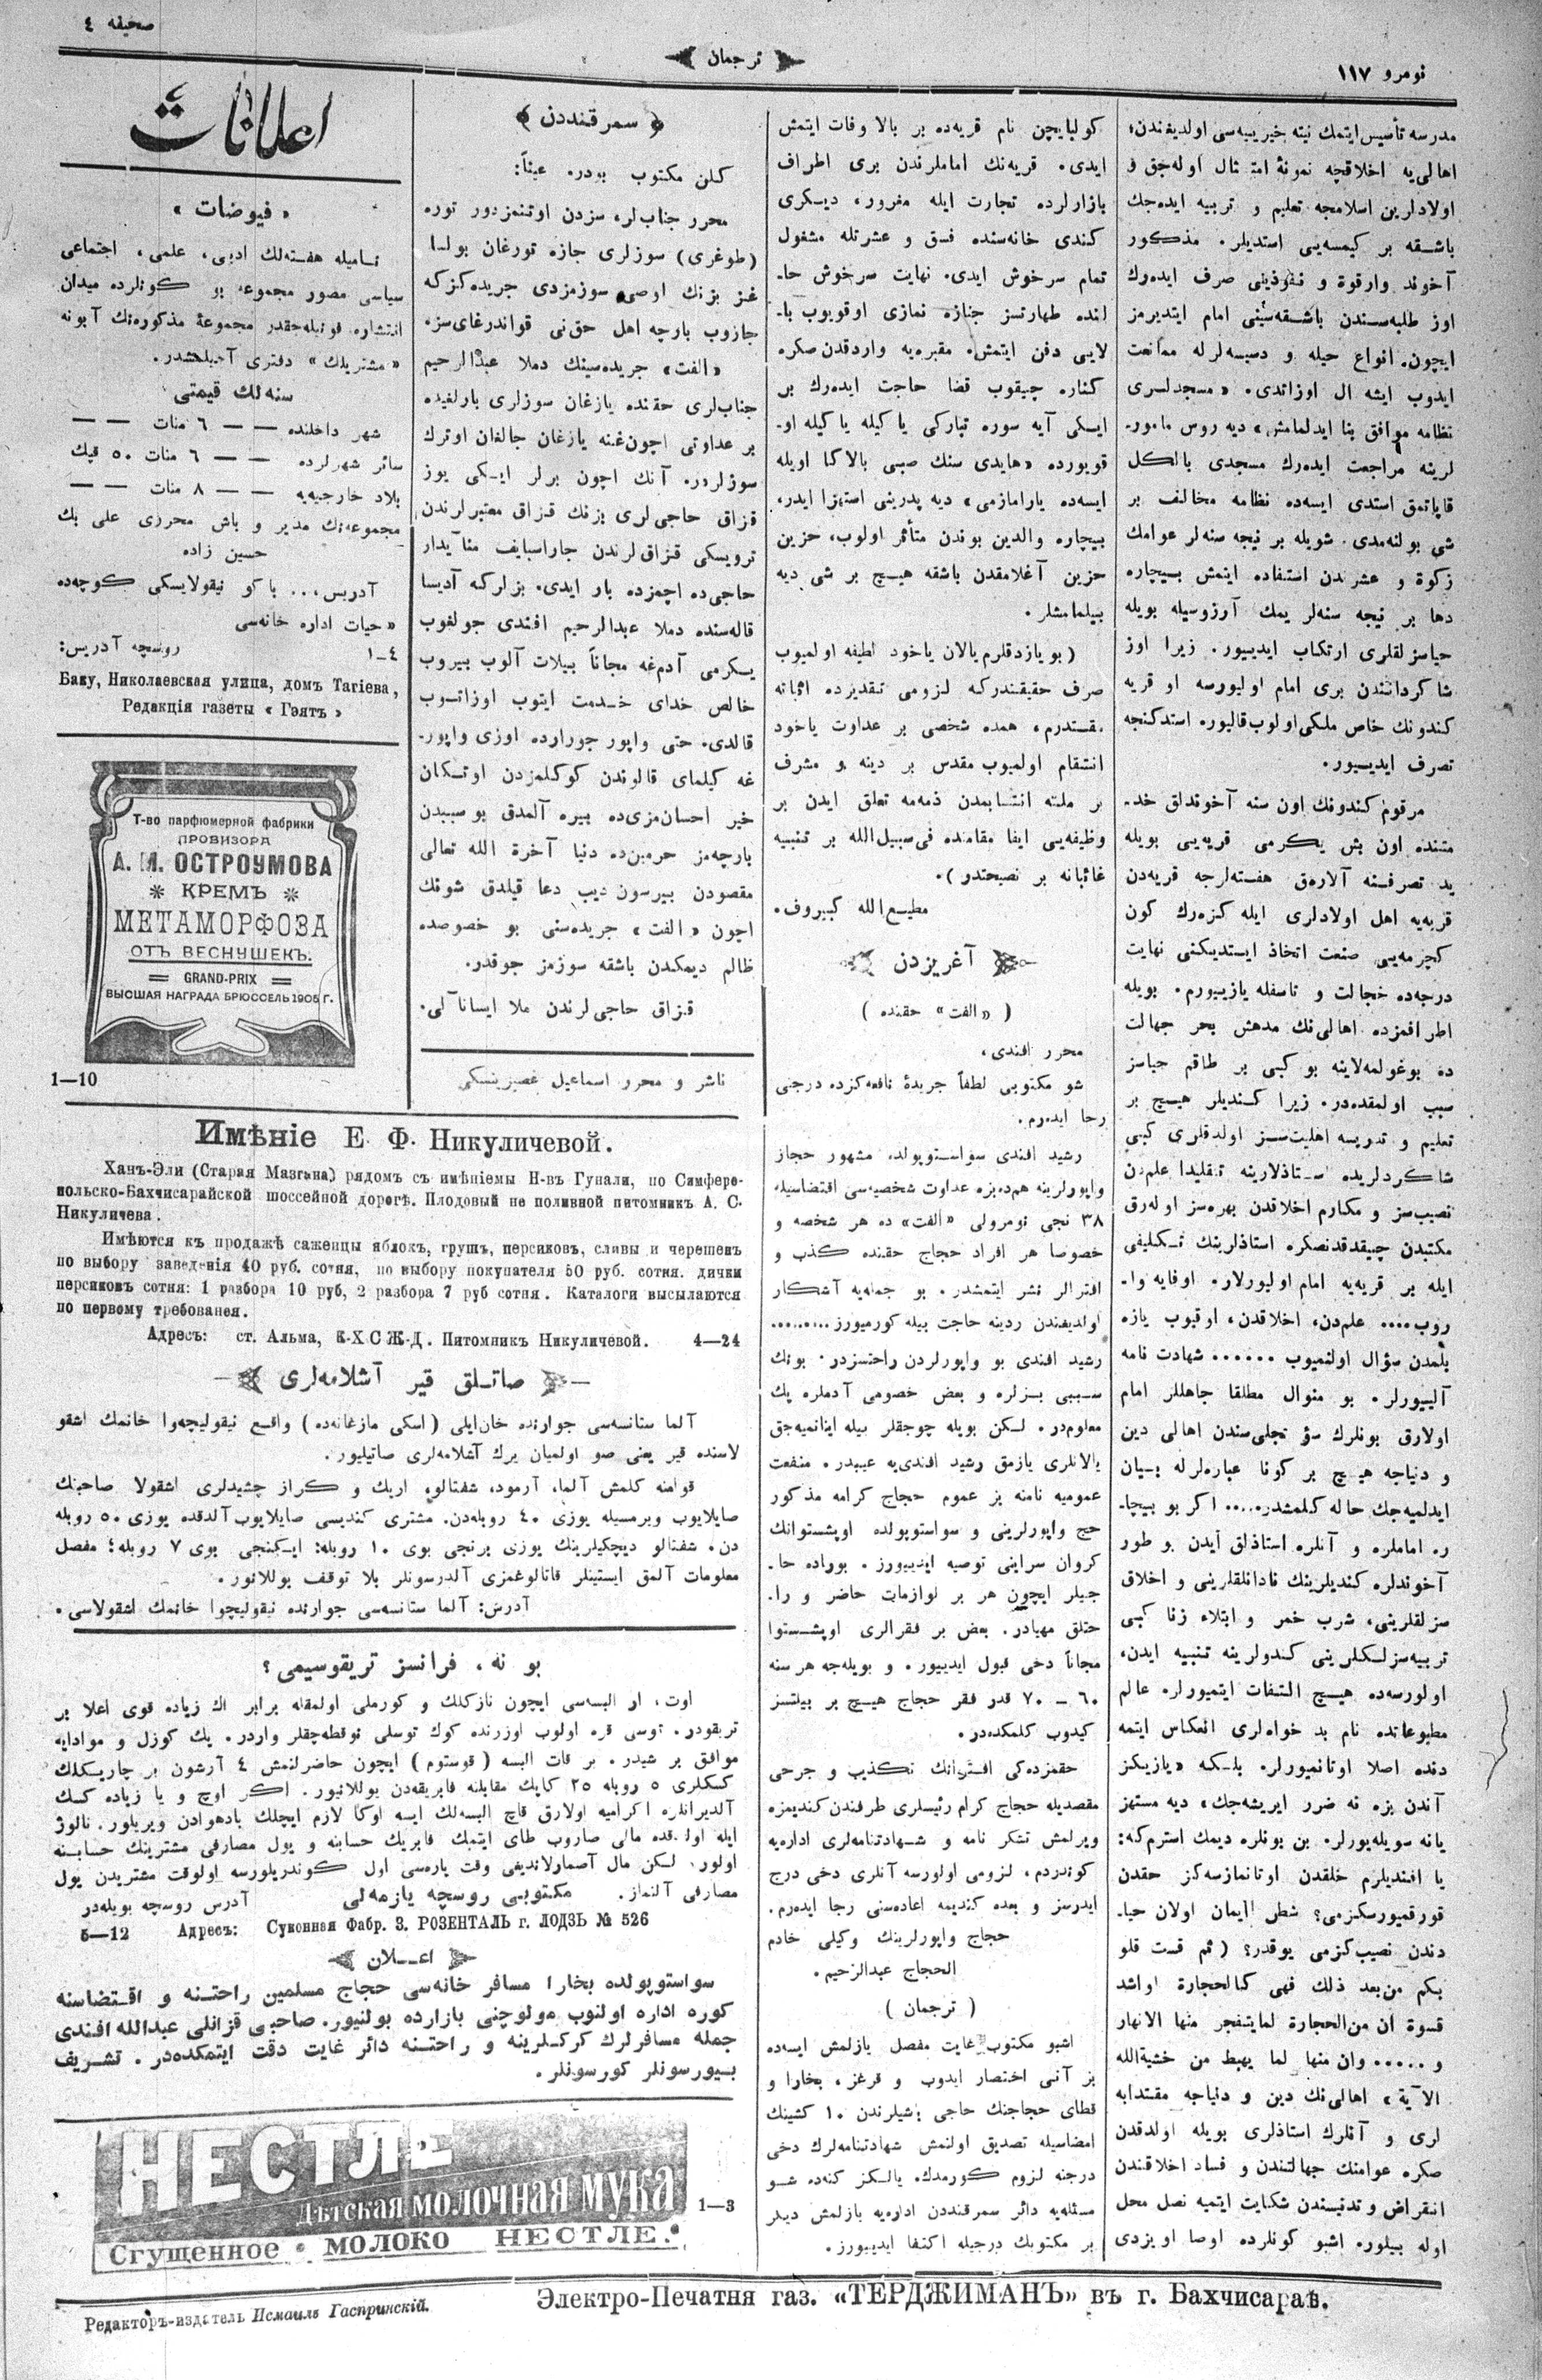 نومرو ١١٧
ترجمان
صحیفه ٤
مدرسه تأسیس ایتمك نیته خیریه‌سی اولدیغندن؛
اهالی‌یه اخلاقچه نمونهٔ امتثال اوله‌جق و
اولادلرین اسلامجه تعلیم و تربیه ایده‌جك
باشقه بر کیمسه‌یی استدیلر. مذکور
آخوند وارقوة و نفوذینی صرف ایده‌رك
اوز طلبه‌سندن باشقه‌سینی امام ایتدیرمز
ایچون. انواع حیله و دسیسه‌لرله ممانعت
ایدوب ایشه ال اوزاتدی. «مسجدلری
نظامه موافق بنا ایدلمامش» دیه روس مامور-
لرینه مراجعت ایده‌رك مسجدی بالکل
قاپاتمق استدی ایسه‌ده نظامه مخالف بر
شی بولنه‌مدی. شویله بر نیجه سنه‌لر عوامك
زکوة و عشرندن استفاده ایتمش بیچاره
دها بر نیجه سنه‌لر یمك آرزوسیله بویله
حیاسزلقلری ارتکاب ایدییور. زیرا اوز
شاکردانندن بری امام اولیورسه او قریه
کندونك خاص ملکی اولوب قالیور. استدکنجه
تصرف ایدییور.
مرقوم کندونك اون سنه آخوندلق خد-
متنده اون بش یکرمی قریه‌یی بویله
ید تصرفنه آلارق هفته‌لرجه قریه‌دن
قریه‌یه اهل اولادلری ایله کزه‌رك کون
کچرمه‌یی صنعت اتخاذ ایستدیکنی نهایت
درجه‌ده خجالت و تاسفله یازییورم. بویله
اطرافمزده اهالی‌نك مدهش بحر جهالت
ده بوغولمه‌لاینه بو کبی بر طاقم حیاسز
سبب اولمقده‌در. زیرا کندیلر هیچ بر
تعلیم و تدریسه اهلیت‌سز اولدقلری کبی
شاکردلریده ستاذلارینه تقلیدا علم‌دن
نصیب‌سز و مکارم اخلاقدن بهره‌سز اوله‌رق
مکتبدن چیقدقدنصکره استاذلرینك تکلیفی
ایله بر قریه‌یه امام اولیورلار. اوقایه وا-
روب.... علم‌دن، اخلاقدن، اوقیوب یازه
بلمدن سؤال اولنمیوب ...... شهادت نامه
آلییورلر. بو منوال مطلقا جاهللر امام
اولارق بونلرك سؤ تجلی‌سندن اهالی دین
و دنیاجه هیچ بر کونا عباره‌لرله بیان
ایدلمیه‌جك حاله کلمشدر..... اکر بو بیچا-
ره اماملره و آنلره استاذلق ایدن بو طور
آخوندلره کندیلرینك نادانلقلرینی و اخلاق
سزلقلرینی، شرب خمر و ابتلاء زنا کبی
تربیه‌سزلکلرینی کندولرینه تنبیه ایدن،
اولورسه‌ده هیچ التفات ایتمیورلر. عالم
مطبوعاتده نام بد خواه‌لری انعکاس ایتمه
دنده اصلا اوتانمیورلر. بلکه «یازیکز
آندن بزه نه ضرر ایریشه‌جك» دیه مستهز
یانه سویله‌یورلر. بن بونلره دیمك استرم‌که:
یا افندیلرم خلقدن اوتانمازسه‌کز حقدن
قورقمیورسکزمی؟ شطر ایمان اولان حیا-
دندن نصیب‌کزمی یوقدر؟ (ثم قست قلو
بکم من بعد ذلك فهی کالحجارة او اشد
قسوة ان من الحجارة لمایتفجر منها الانهار
و ..... وان منها لما یهبط من خشیة‌الله
الآیة» اهالی‌نك دین و دنیاجه مقتدابه
لری و آنلرك استاذلری بویله اولدقدن
صکره عوامنك جهالتندن و فساد اخلاقندن
انقراض و تدنیسندن شکایت ایتمیه نصل محل
اوله بیلور. اشبو کونلرده اوصا اویزدی
کولپایچن نام قریه‌ده بر بالا وفات ایتمش
ایدی. قریه‌نك اماملرندن بری اطراف
بازارلرده تجارت ایله مغرور، دیکری
کندی خانه‌سنده فسق و عشرتله مشغول
تمام سرخوش ایدی. نهایت سرخوش حا-
لنده طهارتسز جنازه نمازی اوقویوب با-
لایی دفن ایتمش. مقبره‌یه واردقدن صکره
کناره چیقوب قضا حاجت ایده‌رك بر
ایکی آیه سوره تبارکی یا کیله یا کیله او-
قویورده «هایدی سنك صبی بالاکا اویله
ایسه‌ده یارامازمی» دیه پدرینی استهزا ایدر،
بیچاره والدین بوندن متأثر اولوب، حزین
حزین آغلامقدن باشقه هیچ بر شی دیه
بیلمامشلر.
(بو یازدقلرم یالان یاخود لطیفه اولمیوب
صرف حقیقتدرکه لزومی تقدیرده اثباته
مقتدرم، همده شخصی بر عداوت یاخود
انتقام اولمیوب مقدس بر دینه و مشرف
بر ملته انتسابمدن ذمه‌مه تعلق ایدن بر
وظیفه‌یی ایفا مقامنده فی سبیل‌الله بر تنبیه
غائبانه بر نصیحتدو).
مطیع‌الله کبیروف.
آغریزدن
(«الفت» حقنده)
محرر افندی،
شو مکتوبی لطفاً جریدهٔ نافعه‌کزده درجنی
رجا ایده‌رم.
رشید افندی سواستوپولده مشهور حجاز
واپورلرینه هم‌ده‌بزه عداوت شخصیه‌سی اقتضاسیله
٣٨ نجی نومرولی «الفت» ده هر شخصه و
خصوصا هر افراد حجاج حقنده کذب و
افترالر نشر ایتمشدر. بو جمله‌یه آشکار
اولدیغندن ردینه حاجت بیله کورمیورز.........
رشید افندی بو واپورلردن راحتسزدر. بونك
سببی بزلره و بعض خصومی آدملره پك
معلوم‌در. لکن بویله چوجقلر بیله اینانمیه‌جق
یالانلری یازمق رشید افندی‌یه عیبدر. منفعت
عمومیه نامنه بز عموم حجاج کرامه مذکور
حج واپورلرینی و سواستوپولده اوپشستوانك
کروان سراینی توصیه ایدییورز. بوراده حا-
جیلر ایچون هر بر لوازمات حاضر و را-
حتلق مهیادر. بعض بر فقرالری اوپشستوا
مجاناً دخی قبول ایدییور. و بویله‌جه هر سنه
٦٠ - ٧٠ قدر فقر حجاج هیچ بر بیلتسز
کیدوب کلمکده‌در.
حقمزده‌کی افترانك تکذیب و جرحی
مقصدیله حجاج کرام رئیسلری طرفندن کندیمزه
ویرلمش تشکر نامه و شهادتنامه‌لری اداره‌یه
کوندردم، لزومی اولورسه آنلری دخی درج
ایدرسز و بعده کندیمه اعاده‌سنی رجا ایده‌رم.
حجاج واپورلرینك وکیلی خادم
الحجاج عبدالرحیم.
(ترجمان)
اشبو مکتوب غایت مفصل یازلمش ایسه‌ده
بز آنی اختصار ایدوب و قرغز، بخارا و
قطای حجاجنك حاجی بشیلرندن ١٠ کشینك
امضاسیله تصدیق اولنمش شهادتنامه‌لرك دخی
درجنه لزوم کورمدك. یالکز کنه‌ده شو
مسئله‌یه دائر سمرقنددن اداره‌یه یازلمش دیکر
بر مکتوبك درجیله اکتفا ایدییورز.
﴿سمرقنددن﴾
کلن مکتوب بودر. عیناً:
محرر جناب‌لر، سزدن اوتنمزدور توره
(طوغری) سوزلری جازه تورغان بولسا
غز بزنك اوصی سوزمزدی جریده‌کزکه
جازوب بارچه اهل حق‌نی قواندرغای‌سز.
«الفت» جریده‌سینك دملا عبدالرحیم
جناب‌لری حقنده یازغان سوزلری بارلغیده
بر عداوتی اچون‌غنه یازغان جالغان اوترك
سوزلردر. آنك اچون برلر ایکی یوز
قزاق حاجی‌لری بزنك قزاق معتبرلرندن
ترویسکی قزاق‌لرندن جاراسبایف منآیدار
حاجی‌ده اچمزده بار ایدی. بزلرکه آدیسا
قاله‌سنده دملا عبدالرحیم افندی جولغوب
یکرمی آدم‌غه مجاناً بیلات آلوب بیروب
خالص خدای خدمت ایتوب اوزاتوب
قالدی. حتی واپور جورارده اوزی واپور-
غه کیلمای قالوندن کوکلمزدن اوتکان
خیر احسان‌مزی‌ده بیره آلمدق بو سببدن
بارچه‌مز حرمین‌ده دنیا آخرة الله تعالی
مقصودن بیرسون دیب دعا قیلدق شونك
اچون «الفت» جریده‌سنی بو خصوصده
ظالم دیمکدن باشقه سوزمز جوقدر.
قزاق حاجی‌لرندن ملا ایسانآلی.
ناشر و محرر اسماعیل غصپرینسکی
اعلانات
«فیوضات»
نامیله هفته‌لك ادبی، علمی، اجتماعی
سیاسی مصور مجموعه بو کونلرده میدان
انتشاره قونیله‌جقدر مجموعهٔ مذکوره‌نك آبونه
«مشتریلك» دفتری آچیلمشدر.
سنه‌لك قیمتی
شهر داخلنده — — ٦ منات — —
سائر شهرلرده — — ٦ منات ٥٠ قپك
بلاد خارجیه‌یه — — ٨ منات — —
مجموعه‌نك مدیر و باش محرری علی بك
حسین زاده
آدریس... باکو نیقولایسکی کوچه‌ده
«حیات اداره خانه‌سی
٤—١ روسچه آدریس:
Баку, Николаевская улица, домъ Тагіева,
Редакція газеты «Гэятъ»
Т-во парфюмерной фабрики
ПРОВИЗОРА
А. М. ОСТРОУМОВА
КРЕМЪ
МЕТАМОРФОЗА
ОТЪ ВЕСНУШЕКЪ.
GRAND-PRIX
ВЫСШАЯ НАГРАДА БРЮССЕЛЬ 1905 Г.
1—10
Имѣніе Е. Ф. Никуличевой.
Ханъ-Эли (Старая Мазгана) рядомъ съ имѣніемы Н-въ Гунали, по Симферо-
польско-Бахчисарайской шоссейной дорогѣ. Плодовый не поливной питомникъ А. С.
Никуличева.
Имѣются къ продажѣ саженцы яблокъ, грушъ, персиковъ, сливы и черешенъ
по выбору заведенія 40 руб. сотня, по выбору покупателя 50 руб. сотня. дички
персиковъ сотня: 1 разбора 10 руб, 2 разбора 7 руб сотня. Каталоги высылаются
по первому требованея.
Адресъ: ст. Альма, К-Х С Ж-Д. Питомникъ Никуличевой. 4—24
صاتلق قیر آشلامه‌لری
آلما ستانسه‌سی جوارنده خان‌ایلی (اسکی مازغانه‌ده) واقع نیقولیچه‌وا خانمك اشقو
لاسنده قیر یعنی صو اولمیان یرك آشلامه‌لری صاتیلیور.
قوامنه کلمش آلما، آرمود، شفتالو، اریك و کراز چشیدلری اشقولا صاحبنك
صایلایوب ویرمسیله یوزی ٤٠ روبله‌دن. مشتری کندیسی صایلایوب آلدقده یوزی ٥٠ روبله
دن. شفتالو دیچکیلرینك یوزی برنجی بوی ١٠ روبله: ایکنجی بوی ٧ روبله؛ مفصل
معلومات آلمق ایستینلر قاتالوغمزی آلدرسونلر بلا توقف یوللانور.
آدرس: آلما ستانسه‌سی جوارنده نیقولیچوا خانمك اشقولاسی.
بو نه، فرانسز تریقوسیمی؟
اوت، ار البسه‌سی ایچون نازکلك و کورملی اولمقله برابر اك زیاده قوی اعلا بر
تریقودر. توسی قره اولوب اوزرنده کوك توسلی نوقطه‌چقلر واردر. پك کوزل و مودایه
موافق بر شیدر. بر قات البسه (قوستوم) ایچون حاضرلنمش ٤ آرشون بر چاریکلك
کسکلری ٥ روبله ٢٥ کاپك مقابلنه فابریقه‌دن یوللانیور. اکر اوچ و یا زیاده کسك
آلدیرانلره اکرامیه اولارق قاچ البسه‌لك ایسه اوکا لازم ایچلك بادهوادن ویریلور. نالوژ
ایله اولنقده مالی صاروب طای ایتمك فابریك حسابنه و یول مصارفی مشترینك حسابنه
اولور، لکن مال آصمارلاندیغی وقت یاره‌سی اول کوندریلورسه اولوقت مشتریدن یول
مصارفی آلنماز. مکتوبی روسچه یازمه‌لی آدرس روسچه بویله‌در
5—12 Адресъ: Суконная Фабр. З. РОЗЕНТАЛЬ г. ЛОДЗЬ № 526
اعلان
سواستوپولده بخارا مسافر خانه‌سی حجاج مسلمین راحتنه و اقتضاسنه
کوره اداره اولنوب مولوچنی بازارده بولنیور. صاحبی قزانلی عبدالله افندی
جمله مسافرلرك کرکلرینه و راحتنه دائر غایت دقت ایتمکده‌در. تشریف
بیورسونلر کورسونلر.
НЕСТЛЕ
Дѣтская МОЛОЧНАЯ МУКА
Сгущенное МОЛОКО НЕСТЛЕ.
1—3
Редакторъ-издатель Исмаилъ Гаспринскій.
Электро-Печатня газ. «ТЕРДЖИМАНЪ» въ г. Бахчисараѣ.